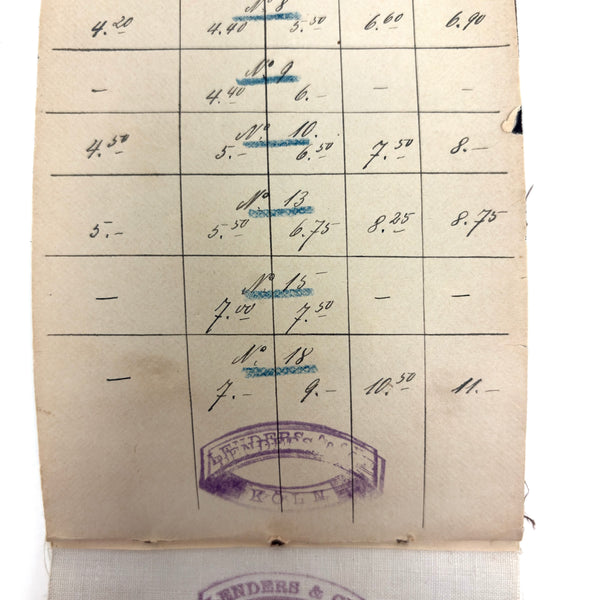 No 8
4.20 4.40 5.50 6.60 6.90
No 9.
– 4.40 6.– – –
No 10.
4.50 5.– 6.50 7.50 8.–
No 13
5.– 5.50 6.75 8.25 8.75
No 15
– 7.00 7.50 – –
No 18
– 7.– 9.– 10.50 11.–
LENDERS &
KÖLN
LENDERS & C